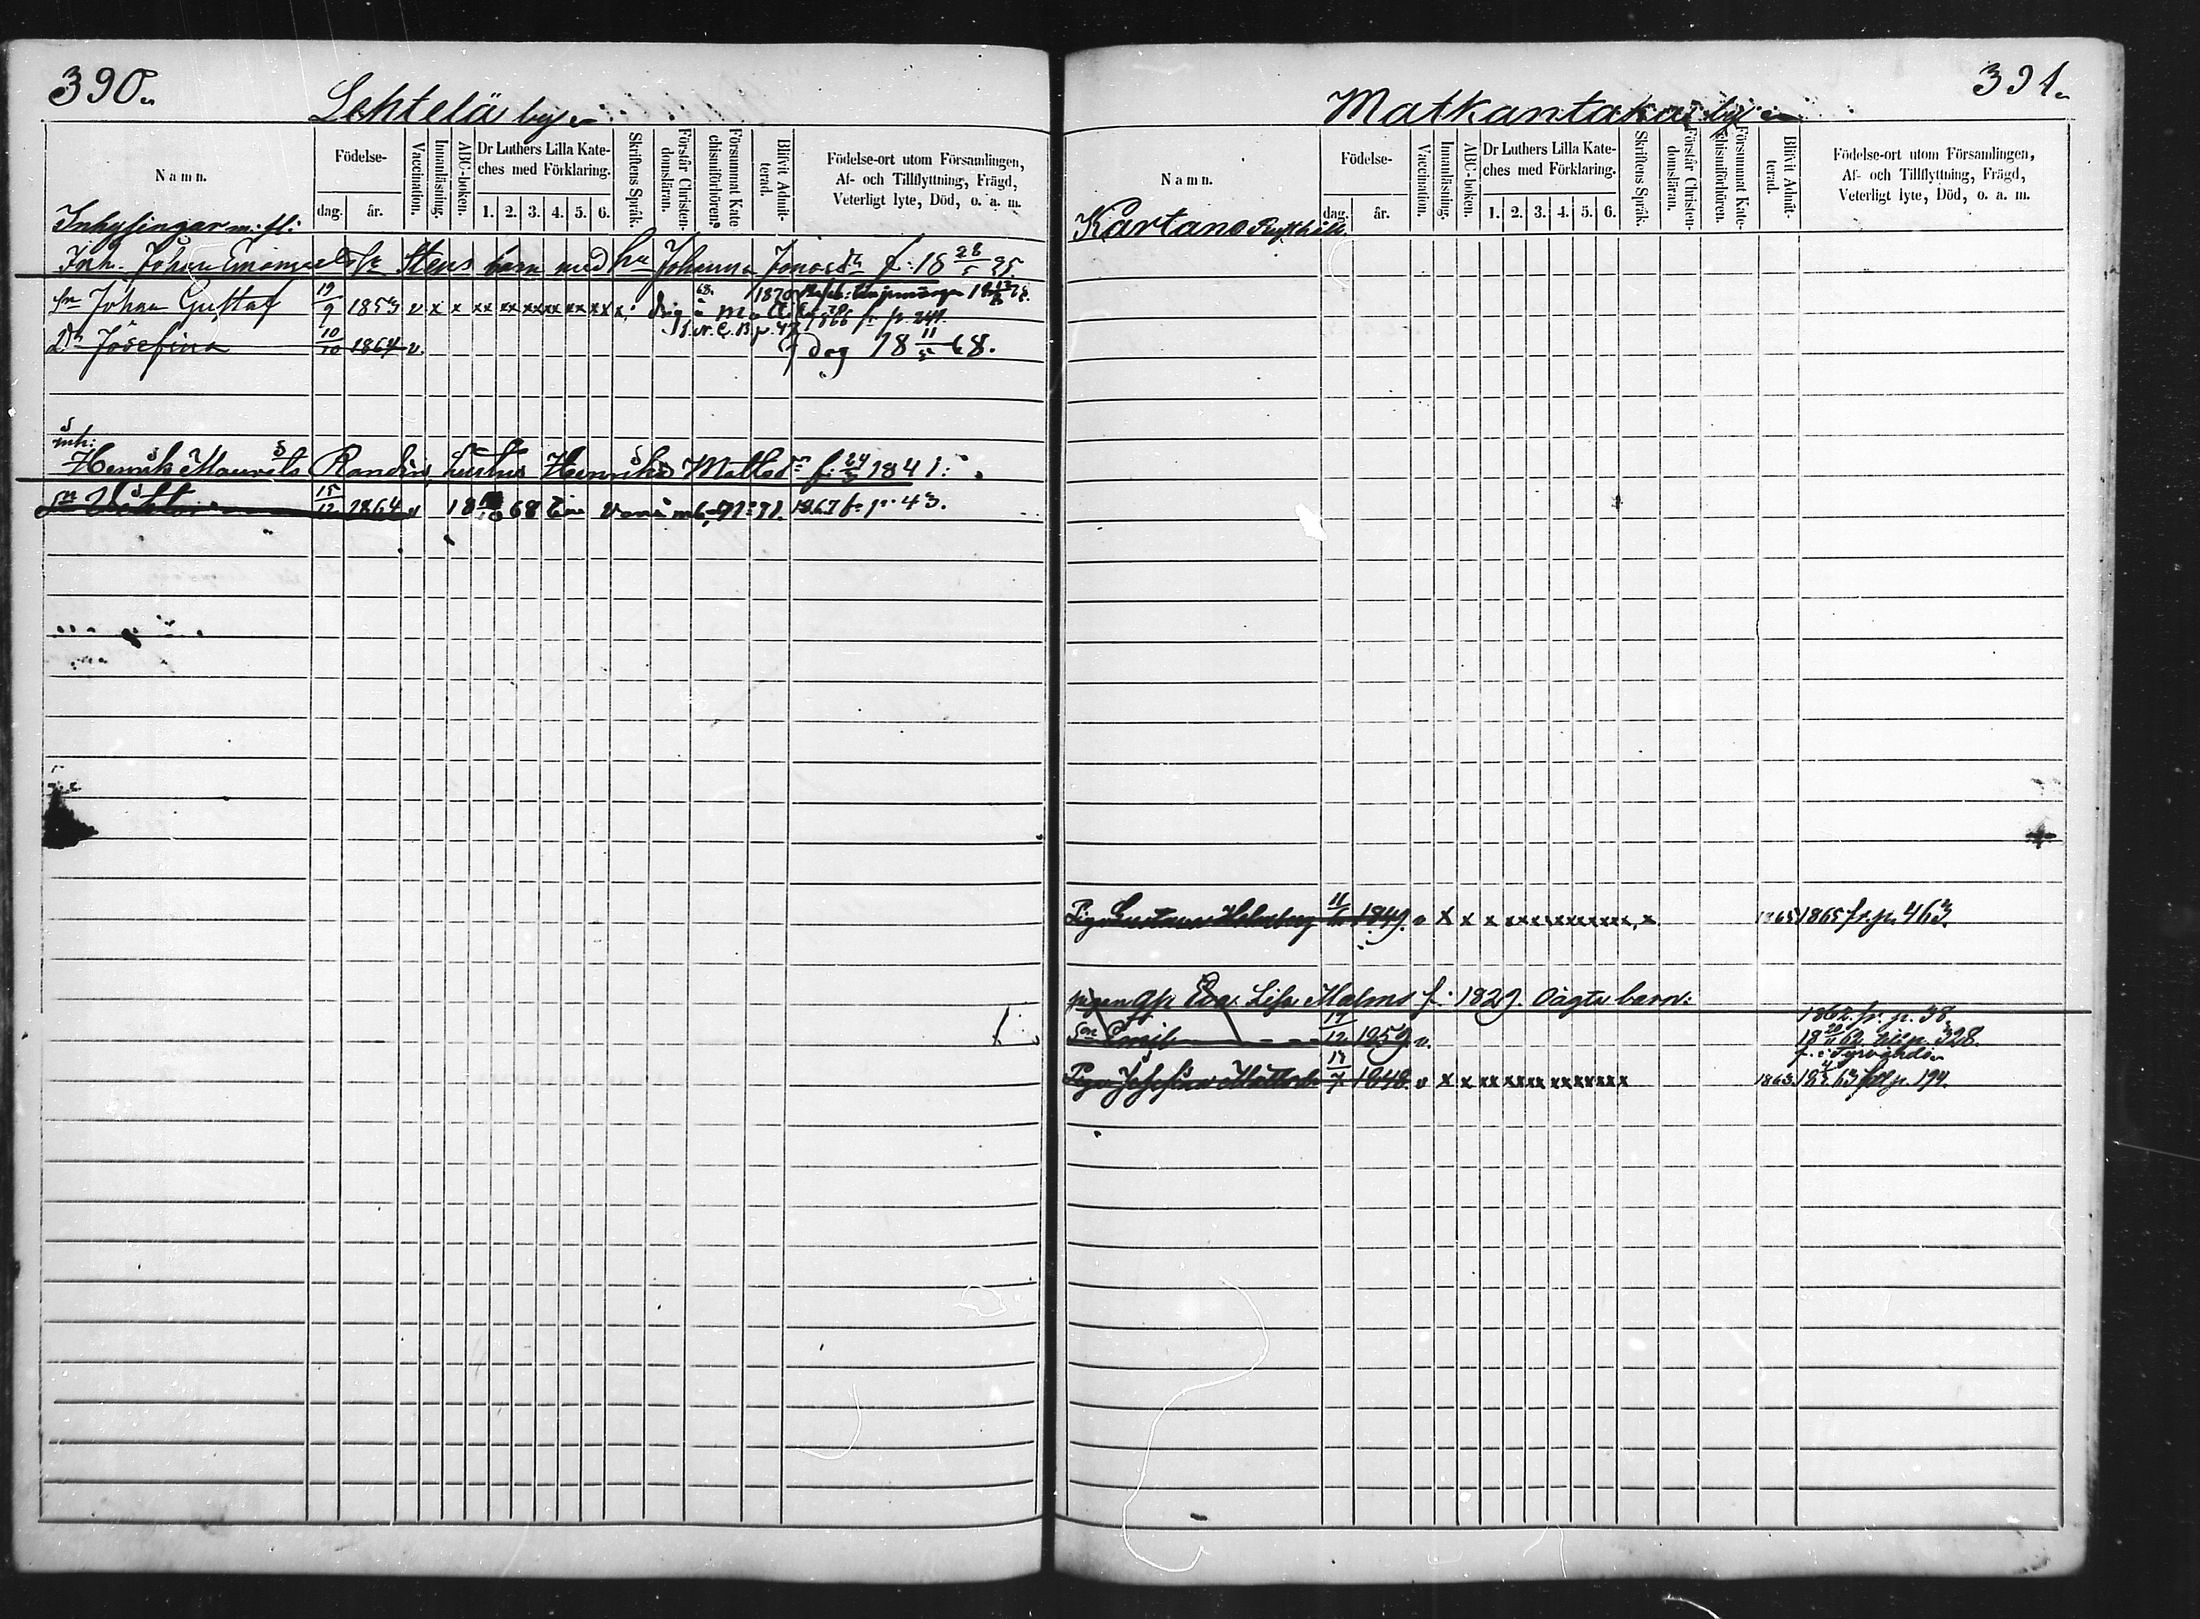 390.
Lehtelä by
Namn.
Födelse-
dag. år.
Vaccination.
Innanläsning.
ABC-boken.
Dr Luthers Lilla Kate-
ches med Förklaring.
1. 2. 3. 4. 5. 6.
Skriftens Språk.
Förstår Christen-
domsläran.
Försummat Kate
chismiförhören.
Blifvit Admit-
terad.
Födelse-ort utom Församlingen,
Af- och Tillflyttning, Frägd,
Veterligt lyte, Död, o. a. m.
Inhysingar m. fl:
Inh. Johan Emanuels Stens barn med hu Johanna Jonasdr f. 18 28/5 25.
Sn Johan Gustaf 19/9 1853 v x x xx xx xx xx x x 1870
1866 fr p. 241.
Dr Josefina 10/10 1864 v. dog 18 11/5 68.
inh:
Henrik Maurits Randin, hustru Henrika Matlsdr f. 24/3 1841.
Sn Viktor 15/12 1864 v 18 68 1867 fr p. 43.
391.
Matkantaka by
Namn.
Födelse-
dag. år.
Vaccination.
Innanläsning.
ABC-boken.
Dr Luthers Lilla Kate-
ches med Förklaring.
1. 2. 3. 4. 5. 6.
Skriftens Språk.
Förstår Christen-
domsläran.
Försummat Kate-
chismiförhören.
Blifvit Admit-
terad.
Födelse-ort utom Församlingen,
Af- och Tillflyttning, Frägd,
Veterligt lyte, Död, o. a. m.
Kartano Rusthåll.
Piga Gustava Helenberg 1849. v x x x xx xx xx xx x 1865 1865 fr. p. 463.
pigan Eva Lisa Malms f. 1829. oägta barn:
1862 fr. p. 58.
Sn Emil 19/12 1859 v. 18 62 till p. 328.
Piga Josefina 1848 v x x xx xx xx xx 1863. 18 63 till p. 194.